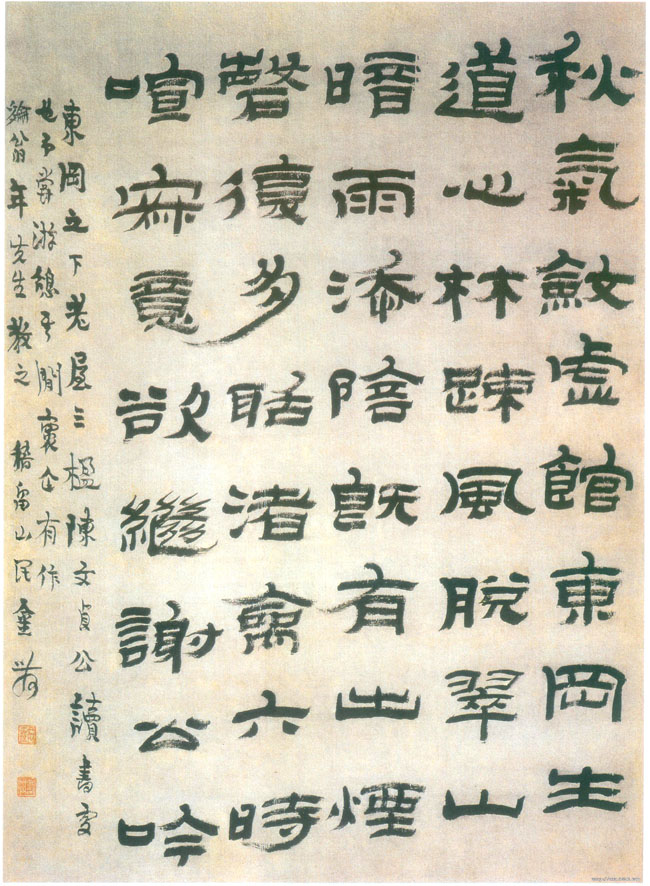 秋氣斂虛館東岡生
道心林疎風脫翠山
暗雨添陰既有出煙
磬復多聒渚禽六時
喧寂意欲繼謝公吟
東岡之下老屋三楹陳文貞公讀書處
也予嘗游憩其間有作
翁年先生教之 稽留山民金農